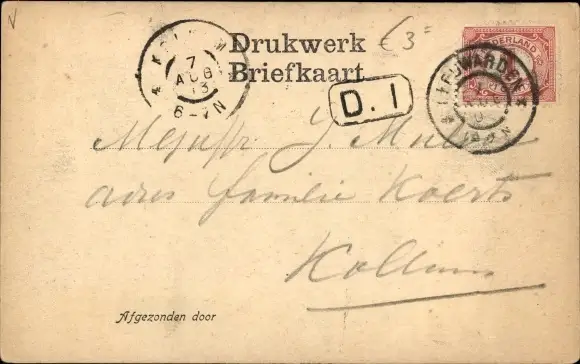 € 3=
Drukwerk
Briefkaart
NEDERLAND
LEEUWARDEN
7
AUG
13
6-7N
D. I
Mejuffr J. Mulder
adres familie Koerts
Kollum
Afgezonden door